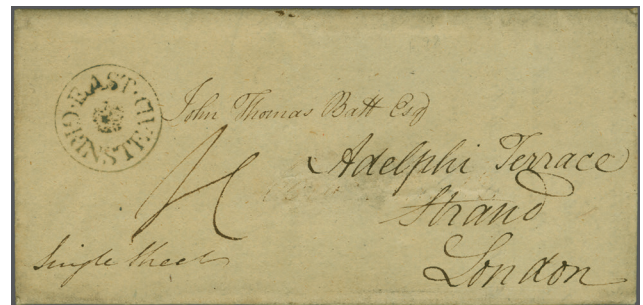 EAST·GRINSTED
John Thomas Batt Esq
Adelphi Terrace
Strand
London
Single Sheet